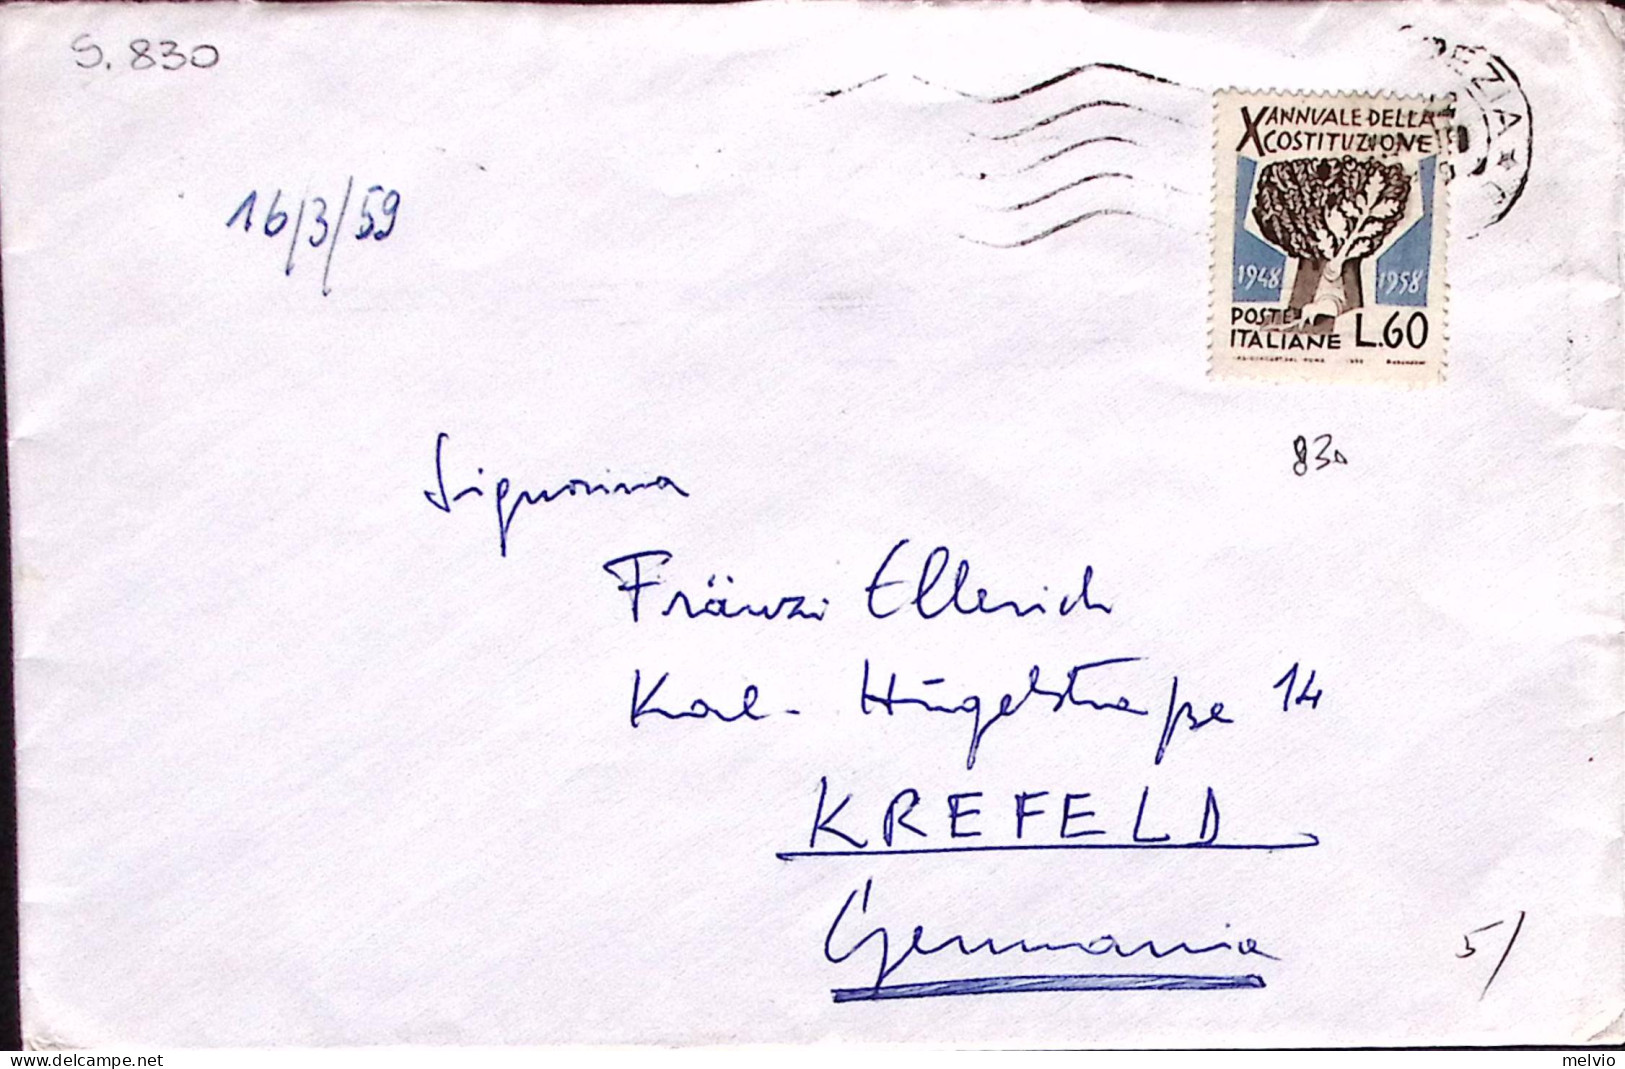 S. 830
16/3/59
X ANNUALE DELLA
COSTITUZIONE
1948 1958
POSTE
ITALIANE L.60
830
Signorina
Fränzi Ellerich
Hügelstraße 14
KREFELD
Germania
5/
melvio